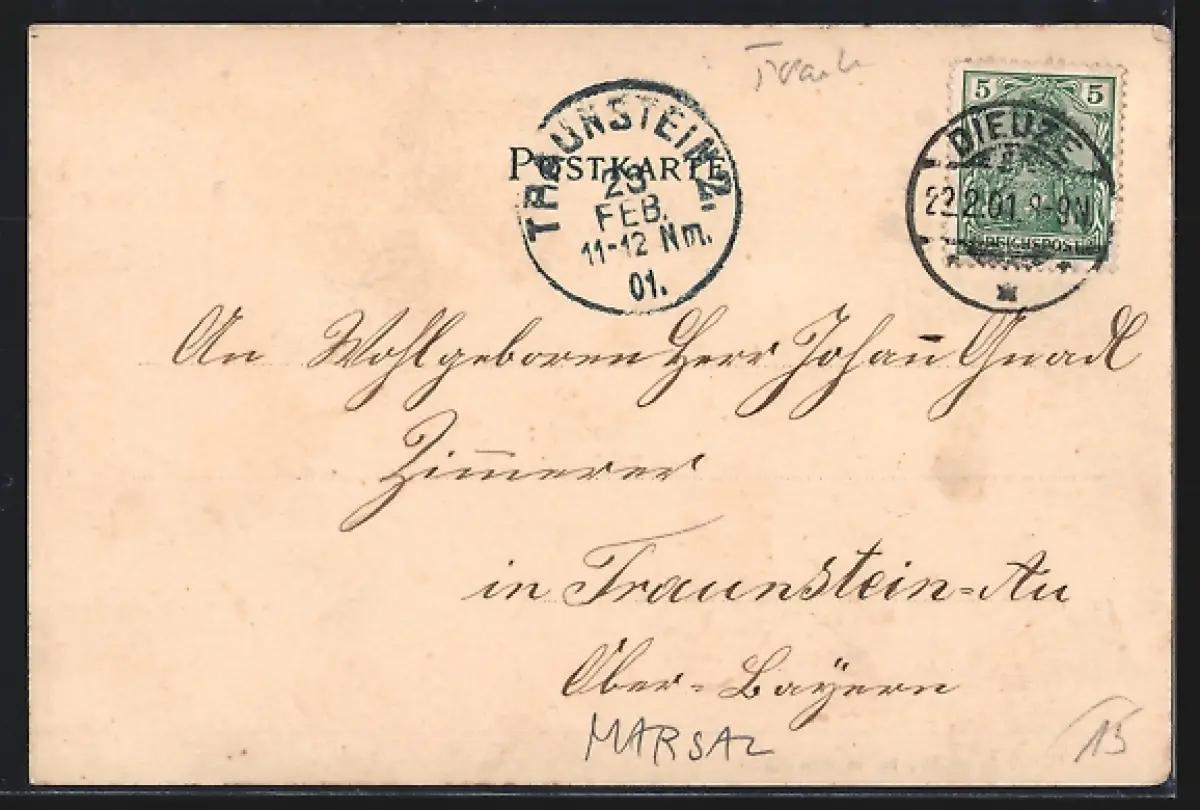 5 5
DIEUZE
22.2.01 8-9N
REICHSPOST
POSTKARTE
TRAUNSTEIN 2.
23
FEB.
11-12 Nm.
01.
An Wohlgeboren Herr Johan̄ Gnadl
Zim̄erer
in Traunstein=Au
Ober=Bayern
MARSAL
15